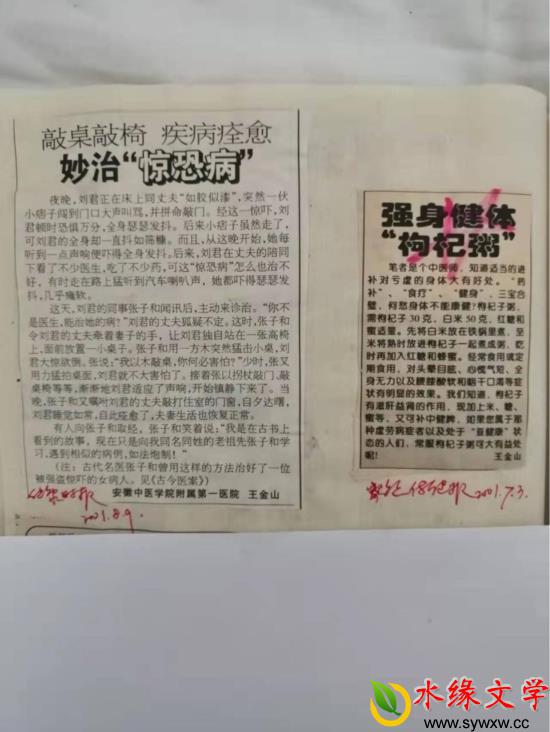 敲桌敲椅 疾病痊愈
妙治“惊恐病”
夜晚,刘君正在床上同丈夫“如胶似漆”,突然一伙
小痞子闯到门口大声叫骂,并拼命敲门。经这一惊吓,刘
君顿时恐惧万分,全身瑟瑟发抖。后来小痞子虽然走了,
可刘君的全身却一直抖如筛糠。而且,从这晚开始,她每
听到一点声响便吓得全身发抖。后来,刘君在丈夫的陪同
下看了不少医生,吃了不少药,可这“惊恐病”怎么也治不
好,有时走在路上猛听到汽车喇叭声,她都吓得瑟瑟发
抖,几乎瘫软。
这天,刘君的同事张子和闻讯后,主动来诊治。“你不
是医生,能治她的病?”刘君的丈夫狐疑不定。这时,张子和
令刘君的丈夫牵着妻子的手,让刘君独自站在一张高椅
上,面前放置一小桌子。张子和用一方木突然猛击小桌,刘
君大惊欲倒。张说:“我以木敲桌,你何必害怕?”少时,张又
用力猛拍桌面,刘君就不大害怕了。接着张以拐杖敲门、敲
桌椅等等,渐渐地刘君适应了声响,开始镇静下来了。当
晚,张子和又嘱咐刘君的丈夫敲打住室的门窗,自夕达曙,
刘君睡觉如常,自此痊愈了,夫妻生活也恢复正常。
有人向张子和取经,张子和笑着说:“我是在古书上
看到的故事,现在只是向我同名同姓的老祖先张子和学
习,遇到相似的病例,如法炮制!”
(注:古代名医张子和曾用这样的方法治好了一位
被强盗惊吓的女病人。见《古今医案》)
安徽中医学院附属第一医院 王金山
2001.8.9.
强身健体
“枸杞粥”
笔者是个中医师,知道适当的进
补对亏虚的身体大有好处。“药
补”、“食疗”、“健身”,三宝合
璧,何愁身体不能康健?枸杞子粥,
需枸杞子30克,白米50克,红糖和
蜜适量。先将白米放在铁锅里煮,至
米将熟时放进枸杞子一起煮成粥,吃
时再加入红糖和蜂蜜。经常食用或定
期食用,对头晕目眩、心慌气短、全
身无力以及腰膝酸软和咽干口渴等症
状有明显的效果。我们知道,枸杞子
有滋肝益肾的作用,现加上米、糖、
蜜等,又可补中健脾,如果您属于那
种虚劳病症者以及处于“亚健康”状
态的人们,常服枸杞子粥可大有益处
呢!
王金山
2001.7.3.
水缘文学
www.sywxw.cc